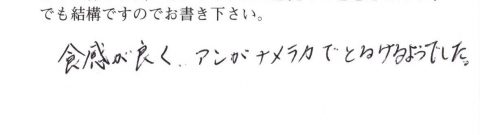 でも結構ですのでお書き下さい。
食感が良く、アンがナメラカでとろけるようでした。